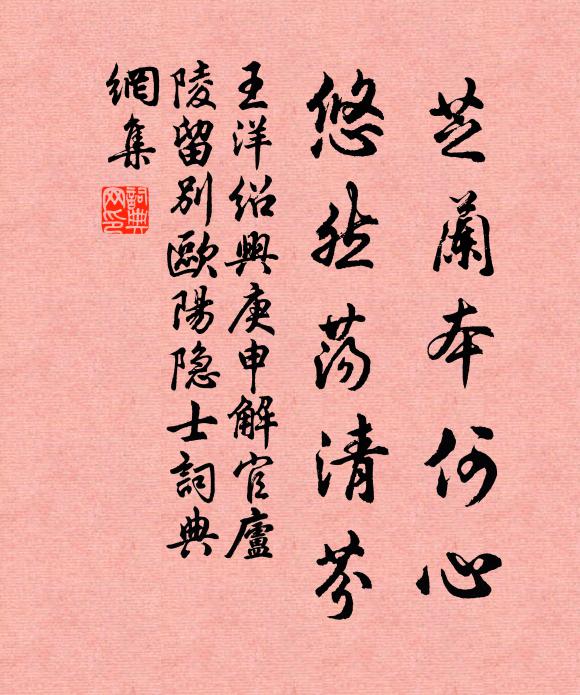 芝蘭本何心
悠然荡清芬
王洋绍興庚申解官廬
陵留别歐陽隐士詞典
網集
詞典
网印